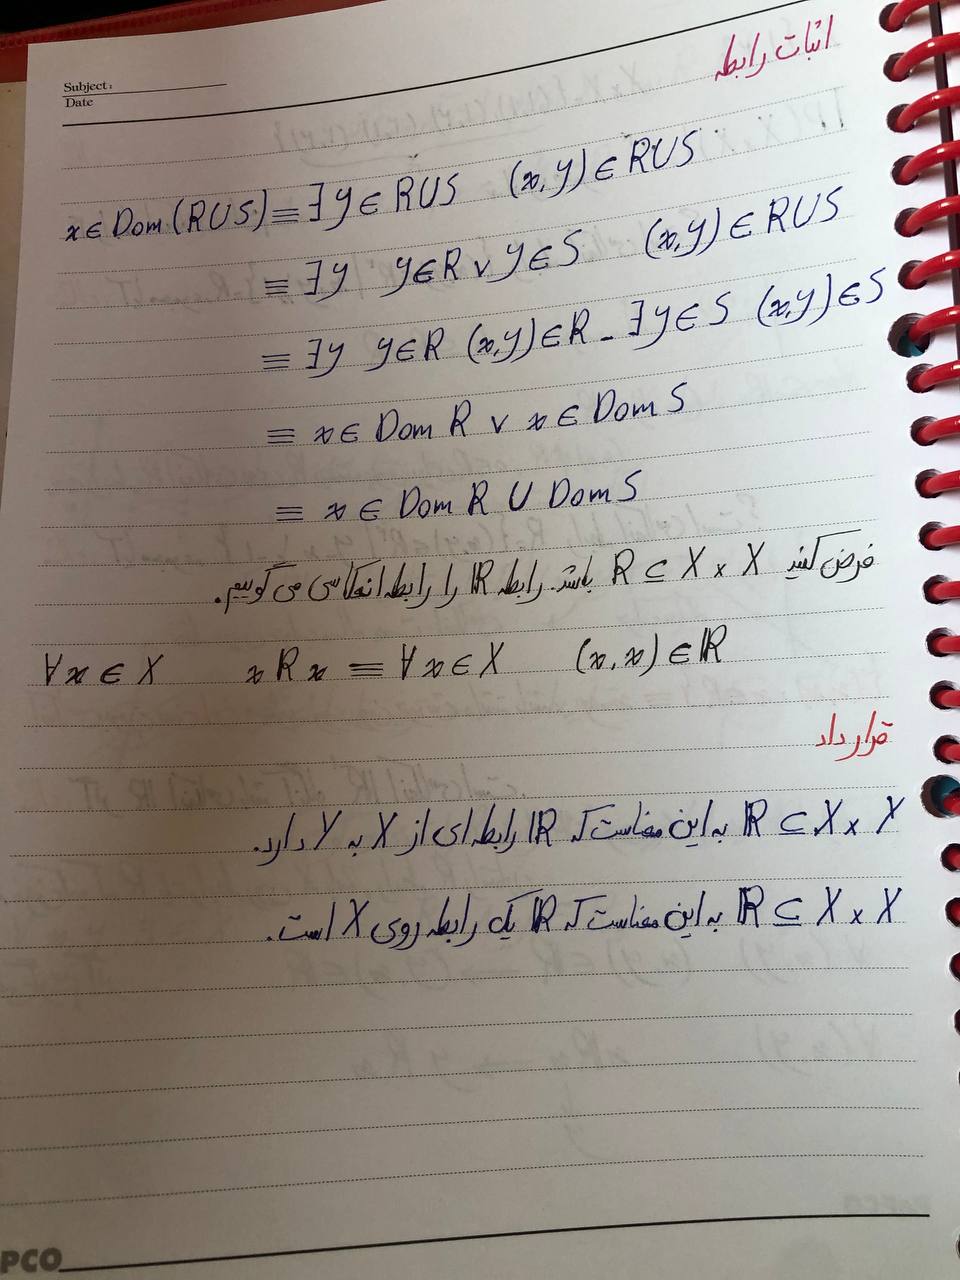 اثبات رابطه
Subject:
Date
x ∈ Dom (R∪S) ≡ ∃y ∈ R∪S (x,y) ∈ R∪S
≡ ∃y y∈R ∨ y∈S (x,y) ∈ R∪S
≡ ∃y y∈R (x,y)∈R - ∃y∈S (x,y)∈S
≡ x ∈ Dom R ∨ x ∈ Dom S
≡ x ∈ Dom R ∪ Dom S
فرض کنید R ⊆ X × X باشد. رابطه R را رابطه انعکاسی می گوییم.
∀x ∈ X xRx ≡ ∀x ∈ X (x,x) ∈ R
قرار داد
R ⊆ X × X به این معناست که R رابطه ای از X به Y دارد.
R ⊆ X × X به این معناست که R یک رابطه روی X است.
PCO